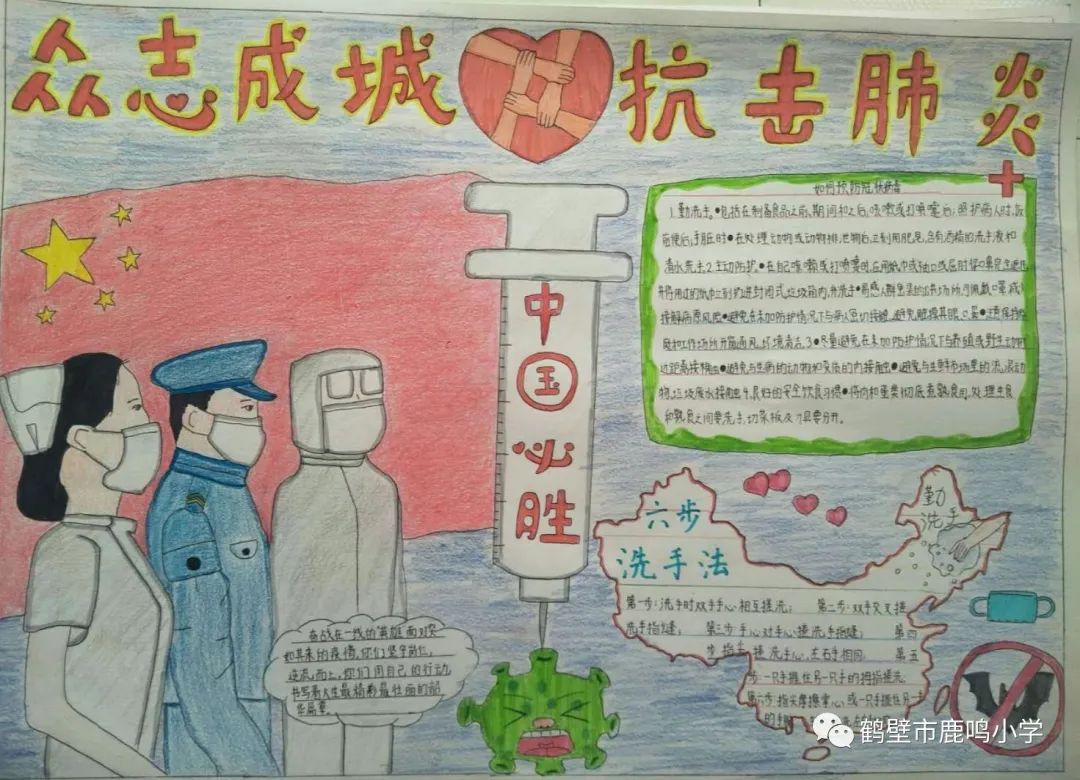 众志成城 抗击肺炎
中国必胜
如何预防冠状病毒
1.勤洗手。●包括在制备食品之前、期间和之后,咳嗽或打喷嚏后;照护病人时,饭
前便后;手脏时●在处理动物或动物排泄物后,立刻用肥皂,含有酒精的洗手液和
清水洗手2.主动防护。●在自己咳嗽或打喷嚏时,应用纸巾或袖口或屈肘将口鼻完全遮住
并将用过的纸巾立刻扔进封闭式垃圾箱内,并洗手●易感人群
接触病原风险●避免在未加防护情况下与病人密切接触,避免触摸其眼口鼻●
庭和工作场所开窗通风,环境清洁,3●尽量避免在未加防护情况下与养殖或野生动物
近距离接触●避免与生病的动物和变质的肉接触●避免与生鲜市场里的流浪动
物,垃圾废水接触
和熟食之间要洗手,切菜板及刀具要分开。
六步
洗手法
勤
洗手
第一步:洗手时双手手心相互搓洗; 第二步:双手交叉搓
洗手指缝; 第三步:手心对手心搓洗手指缝; 第四
步:指 搓洗手心,左右手相同 第五
步:一只手握住另一只手的拇指搓洗
第六步:指尖摩擦掌心,或一只手握住另一
的手
奋战在一线的英雄面对突
如其来的疫情,你们坚守岗位,
逆流而上,你们用自己的行动
书写着人生最精彩最壮丽的韶
华篇章。
鹤壁市鹿鸣小学